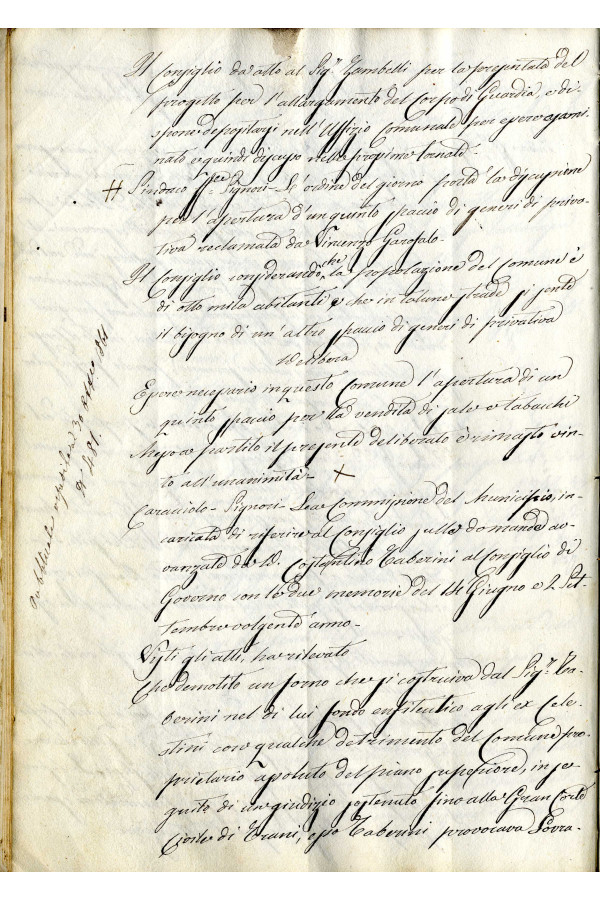 Il Consiglio dà atto al Sig.r Zambelli per la presentata del
progetto per l'allargamento del Corpo di Guardia, e di-
spone depositarsi nell'Uffizio Comunale per essere esami-
nato e quindi discusso nella prossima tornata.
# Sindaco ff.te Signori - L'ordine del giorno porta la discussione
per l'apertura d'un quinto spaccio di generi di priva-
tiva reclamata da Vincenzo Garofalo.
Il Consiglio considerando che la popolazione del Comune è
di otto mila abitanti e che in talune strade si sente
il bisogno di un'altro spaccio di generi di privativa
Delibera
Essere necessario in questo Comune l'apertura di un
quinto spaccio per la vendita di sale e tabacchi
Messo a partito il presente deliberato è rimasto vin-
to all'unanimità - X
Caracciolo - Signori - La Commissione del Municipio, in-
caricata di riferire al Consiglio sulla domanda av-
vanzata da D. Costantino Taberini al Consiglio di
Governo con le due memorie del 14 Giugno e 2 Set-
tembre volgente anno -
Visti gli atti, ha rilevato
Che demolito un forno che si costruiva dal Sig.r Ta-
berini nel di lui fondo enfiteutico agli ex Cele-
stini con qualche detrimento del Comune pro-
prietario assoluto del piano superiore, in se-
guito di un giudizio sostenuto fino alla Gran Corte
Civile di Trani, esso Taberini provocava Sovra-
N. 481.